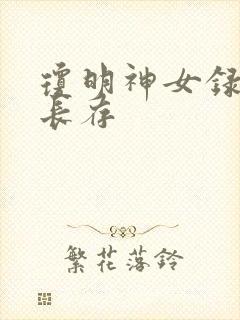 瓊明神女録
長存
繁花落鈴